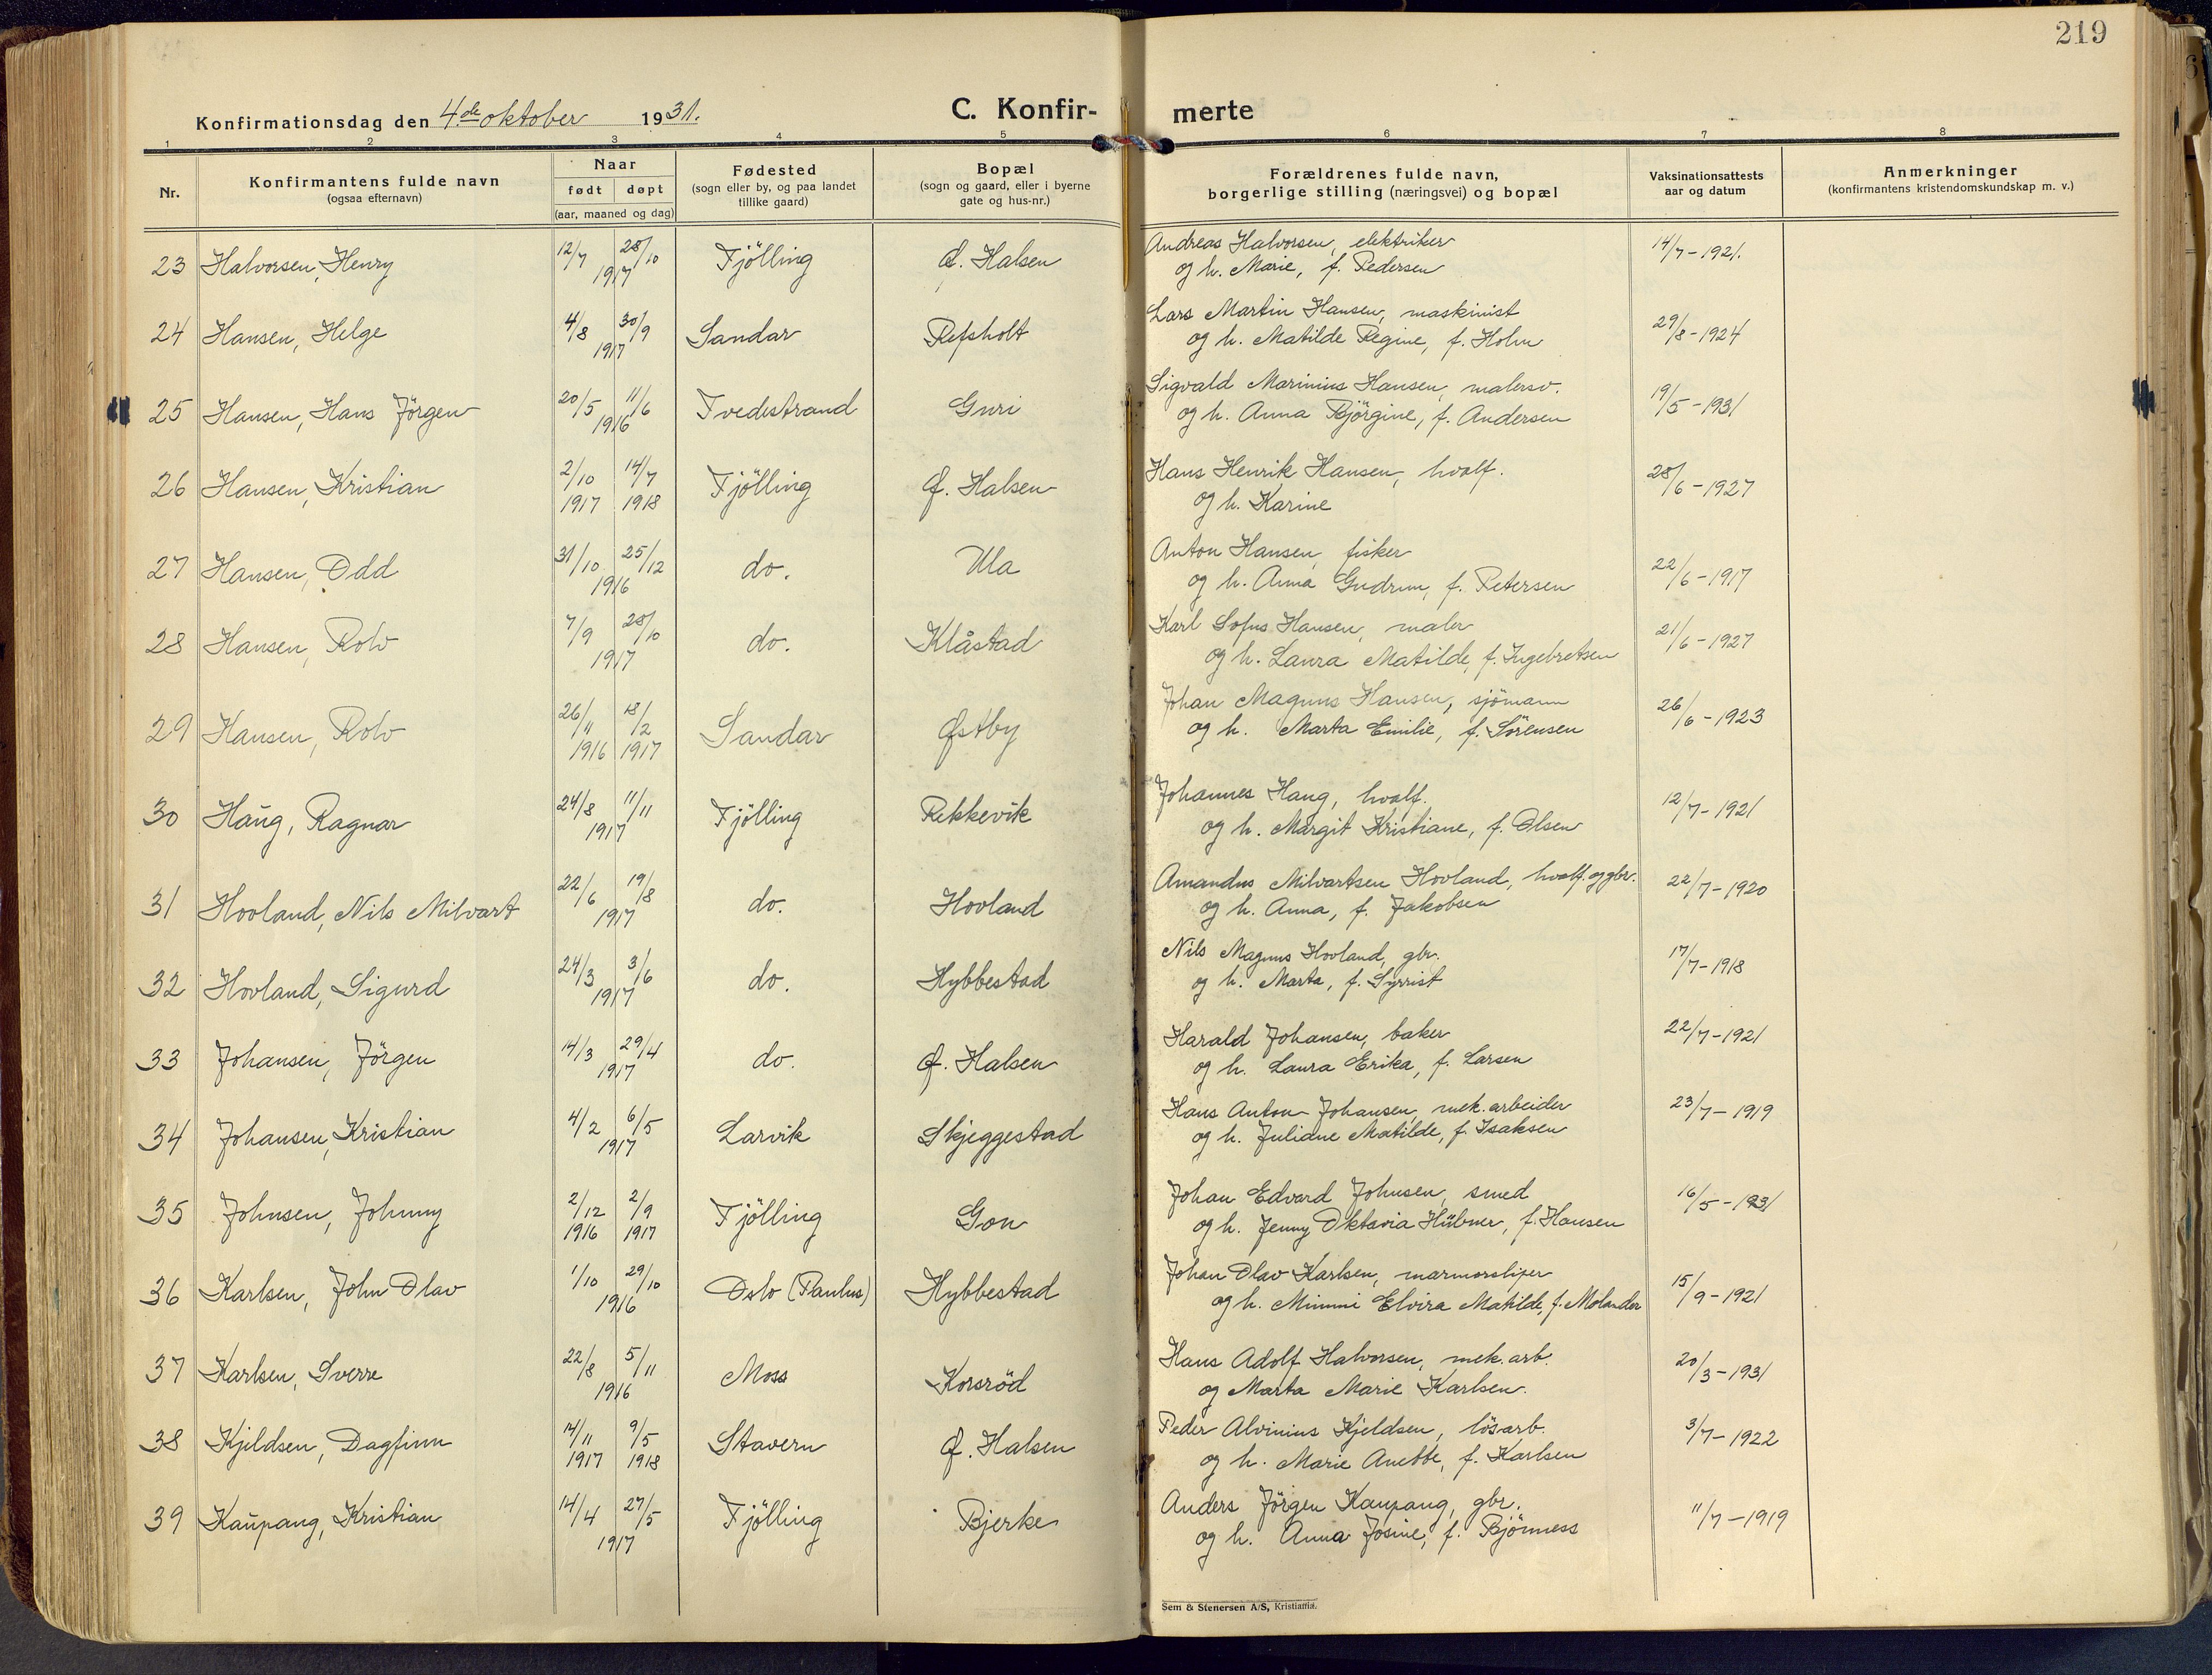 219
Konfirmationsdag den 4de oktober 1931.
C. Konfir-merte
1 2 3 4 5 6 7 8
Nr.
Konfirmantens fulde navn
(ogsaa efternavn)
Naar
født døpt
(aar, maaned og dag)
Fødested
(sogn eller by, og paa landet
tillike gaard)
Bopæl
(sogn og gaard, eller i byerne
gate og hus-nr.)
Forældrenes fulde navn,
borgerlige stilling (næringsvei) og bopæl
Vaksinationsattests
aar og datum
Anmerkninger
(konfirmantens kristendomskundskap m. v.)
23 Halvorsen, Henry 12/7 28/10 1917 Tjölling Ø. Halsen Andreas Halvorsen, elektriker 14/7-1921.
og h. Marie, f. Pedersen
24 Hansen, Helge 4/8 30/9 1917 Sandar Refsholt Lars Martin Hansen, maskinist 29/8-1924
og h. Matilde Regine, f. Holm
25 Hansen, Hans Jörgen 20/5 11/6 1916 Tvedestrand Guri Sigvald Marinius Hansen, malersv. 19/5-1931
og h. Anna Björgine, f. Andersen
26 Hansen, Kristian 2/10 1917 14/7 1918 Tjölling Ø. Halsen Hans Henrik Hansen, hvalf. 28/6-1927
og h. Karine
27 Hansen, Odd 31/10 25/12 1916 do. Ula Anton Hansen, fisker 22/6-1917
og h. Anna Gudrun, f. Petersen
28 Hansen, Rolv 7/9 28/10 1917 do. Klåstad Karl Sofus Hansen, maler 21/6-1927
og h. Laura Matilde, f. Ingebretsen
29 Hansen, Rolv 26/11 1916 18/2 1917 Sandar Østby Johan Magnus Hansen, sjömann 26/6-1923
og h. Marta Emilie, f. Sörensen
30 Haug, Ragnar 24/8 11/11 1917 Tjölling Rekkevik Johannes Haug, hvalf. 12/7-1921
og h. Margit Kristiane, f. Olsen
31 Hovland, Nils Milvart 22/6 19/8 1917 do. Hovland Amandus Milvartsen Hovland, hvalf. og gbr. 22/7-1920
og h. Anna, f. Jakobsen
32 Hovland, Sigurd 24/3 3/6 1917 do. Hybbestad Nils Magnus Hovland, gbr. 17/7-1918
og h. Marta, f. Syrrist
33 Johansen, Jörgen 14/3 29/4 1917 do. Ø. Halsen Harald Johansen, baker 22/7-1921
og h. Laura Erika, f. Larsen
34 Johansen, Kristian 4/2 6/5 1917 Larvik Skjeggestad Hans Anton Johansen, mek. arbeider 23/7-1919
og h. Juliane Matilde, f. Isaksen
35 Johnsen, Johnny 2/12 1916 2/9 1917 Tjölling Gon Johan Edvard Johnsen, smed 16/5-1931
og h. Jenny Oktavia Hübner, f. Hansen
36 Karlsen, John Olav 1/10 29/10 1916 Oslo (Paulus) Hybbestad Johan Olav Karlsen, marmorsliper 15/9-1921
og h. Mimmi Elvira Matilde, f. Molander
37 Karlsen, Sverre 22/8 5/11 1916 Moss Korsröd Hans Adolf Halvorsen, mek. arb. 20/3-1931
og Marta Marie Karlsen.
38 Kjeldsen, Dagfinn 14/11 1917 9/5 1918 Stavern Ø. Halsen Peder Alvinius Kjeldsen, lösarb. 3/7-1922
og h. Marie Anette, f. Karlsen
39 Kaupang, Kristian 14/4 27/5 1917 Tjölling Bjerke Anders Jörgen Kaupang, gbr. 11/7-1919
og h. Anna Josine, f. Bjönness
Sem & Stenersen A/S, Kristiania.